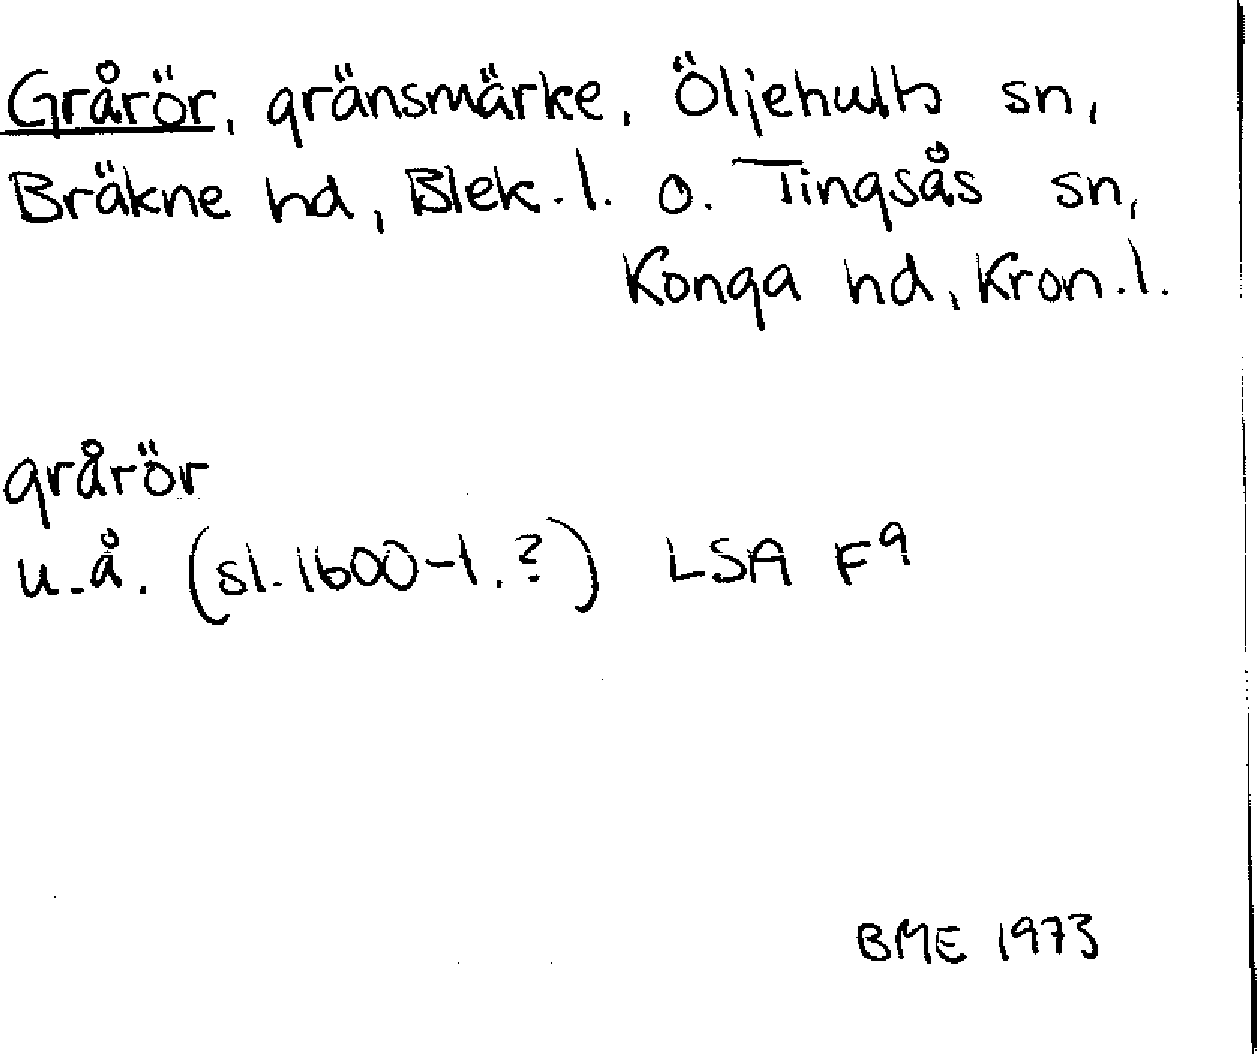 Grårör, gränsmärke, Öljehults sn,
Bräkne hd, Blek. l. o. Tingsås sn,
Konga hd, Kron. l.
grårör
u.å. (sl. 1600-t.?) LSA F9
BME 1973